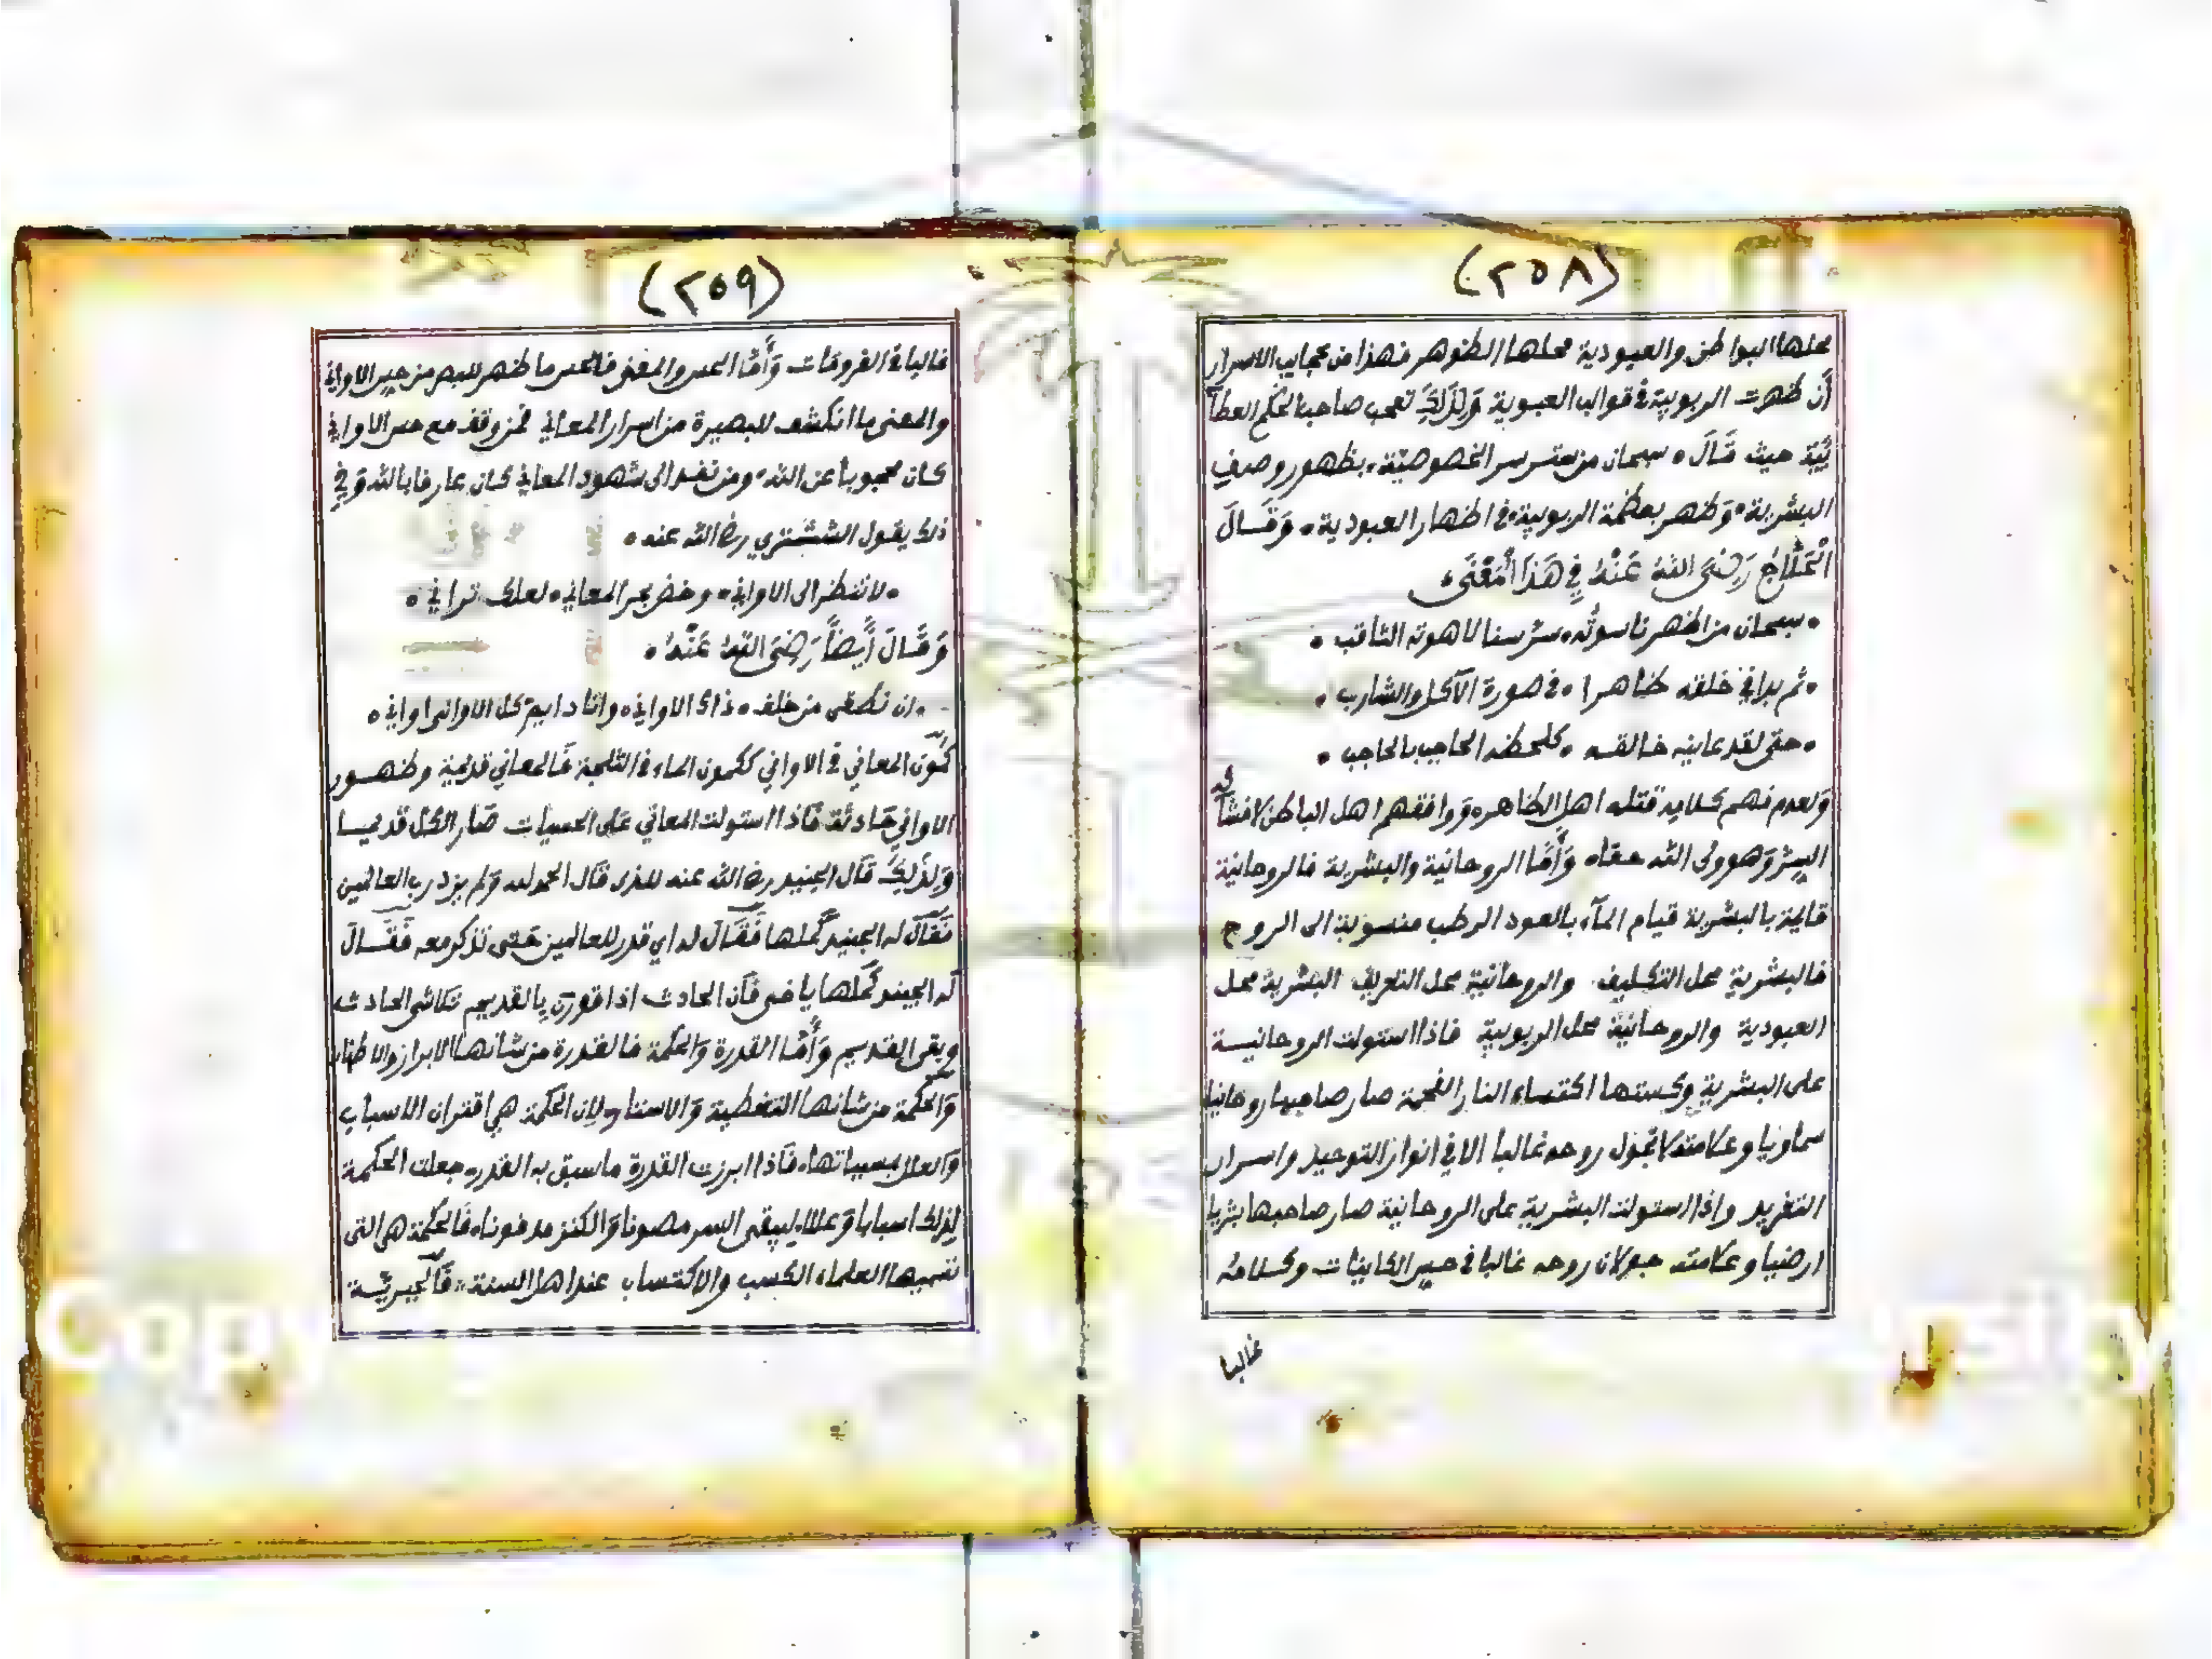 (٢٥٨)
محلها البواطن والعبودية محلها الظوهر فهذا من عجايب الاسرار
أن ظهرت الربوبية في قوالب العبوية وَلِذَلِكَ تعجب صاحب الحكم العطآ
ئية حيث قَالَ • سبحان من ستر سر الخصوصيّة • بظهور وصف
البشرية • وَظهر بعظمة الربوبية في اظهار العبودية • وَقَالَ
الْحَلَّاجُ رَضِيَ اللهُ عَنْهُ فِي هَذَا الْمَعْنَى •
• سبحان من اظهر ناسوته • سرّ سنا لاهوته الثاقب •
• ثم بدا في خلقه ظاهرا • في صورة الآكل والشارب •
• حتى لقد عاينه خالقه • كلحظه الحاجب بالحاجب •
وَلعدم فهم كلامه قتله اهل الظاهر • وَوافقهم اهل الباطن لافشائه
السِرّ وَهو ولى الله حقا • وَأَمَّا الروحانية والبشرية فالروحانية
قايمة بالبشرية قيام المآء بالعود الرطب منسوبة الى الروح
فالبشرية محل التكليف والروحانية محل التعريف البشرية محل
العبودية والروحانية محل الربوبية فاذا استولت الروحانيسة
على البشرية وكستها اكتساء النار الفحمة صار صاحبها روحانيا
سماويا وعلامته لا تجول روحه غالبا الا في انوار التوحيد واسرار
التفريد واذا استولت البشرية على الروحانية صار صاحبها بشريا
ارضيا وعلامته جولان روحه غالبا في حس الكاينات وكلامه
غالبا
(٢٥٩)
غالبا في الفروقات وَأَمَّا الحس والمعنى فالحس ما ظهر للبصر من حس الاواني
والمعنى ما انكشف للبصيرة من اسرار المعاني فمن وقف مع حس الاواني
كان محجوبا عن الله • ومن نفذ الى شهود المعاني كان عارفا بالله وَفِي
ذلك يقول الششتري رضا الله عنه •
• لا تنظر الى الاواني • وخض بحر المعاني • لعلك تراني •
وَقَالَ أَيضاً رَضِيَ اللهُ عَنْهُ •
• ان نطقى من خلف • ذاك الاواني • وانا دايم كل الاوانى اواني •
كمون المعاني في الاواني ككمون الماء في الثلجة فَالمعاني قديمة وظهور
الاواني حادثة فَاذا استولت المعاني على الحسيات صَار الكل قديما
وَلِذَلِكَ قَال الجنيد رضا الله عنه للذى قال الحمد لله وَلم يزد رب العالمين
فقَال له الجنيد كَمّلها فَقَالَ له اي قدر للعالمين حتى تذكر معه فَقَالَ
له الجنيد كَمّلها يا اخى فَان الحادث اذا قورن بِالقديم تلاشى الحادث
وبقى القديم وَأَمَّا القدرة وَالحكمة فالقدرة من شأنها الابراز والاظهار
وَالحكمة من شانها التغطية وَالاستتار • لان الحكمة هي اقتران الاسباب
وَالعلل بمسبباتها • فَاذا ابرزت القدرة ماسبق به القدر • جعلت الحكمة
لِذلك اسبابا وَعللا • ليبقى السر مصونا وَالكنز مدفونا • فَالحكمة هى التى
تسميها العلماء الكسب والاكتساب عند اهل السنة • فَالجبريّة